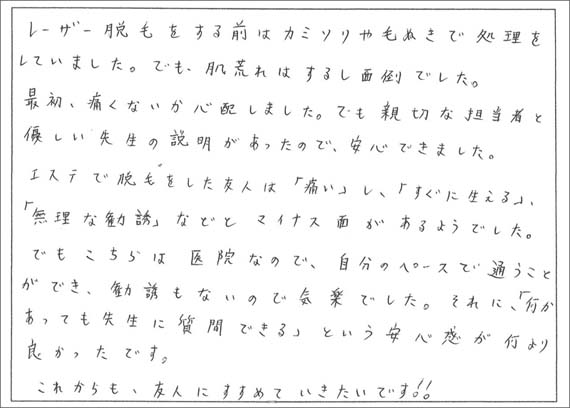 レーザー脱毛をする前はカミソリや毛ぬきで処理を
していました。でも、肌荒れはするし面倒でした。
最初、痛くないか心配しました。でも親切な担当者と
優しい先生の説明があったので、安心できました。
エステで脱毛をした友人は「痛い」し、「すぐに生える」、
「無理な勧誘」などとマイナス面があるようでした。
でもこちらは医院なので、自分のペースで通うこと
ができ、勧誘もないので気楽でした。それに、「何か
あっても先生に質問できる」という安心感が何より
良かったです。
これからも、友人にすすめていきたいです!!